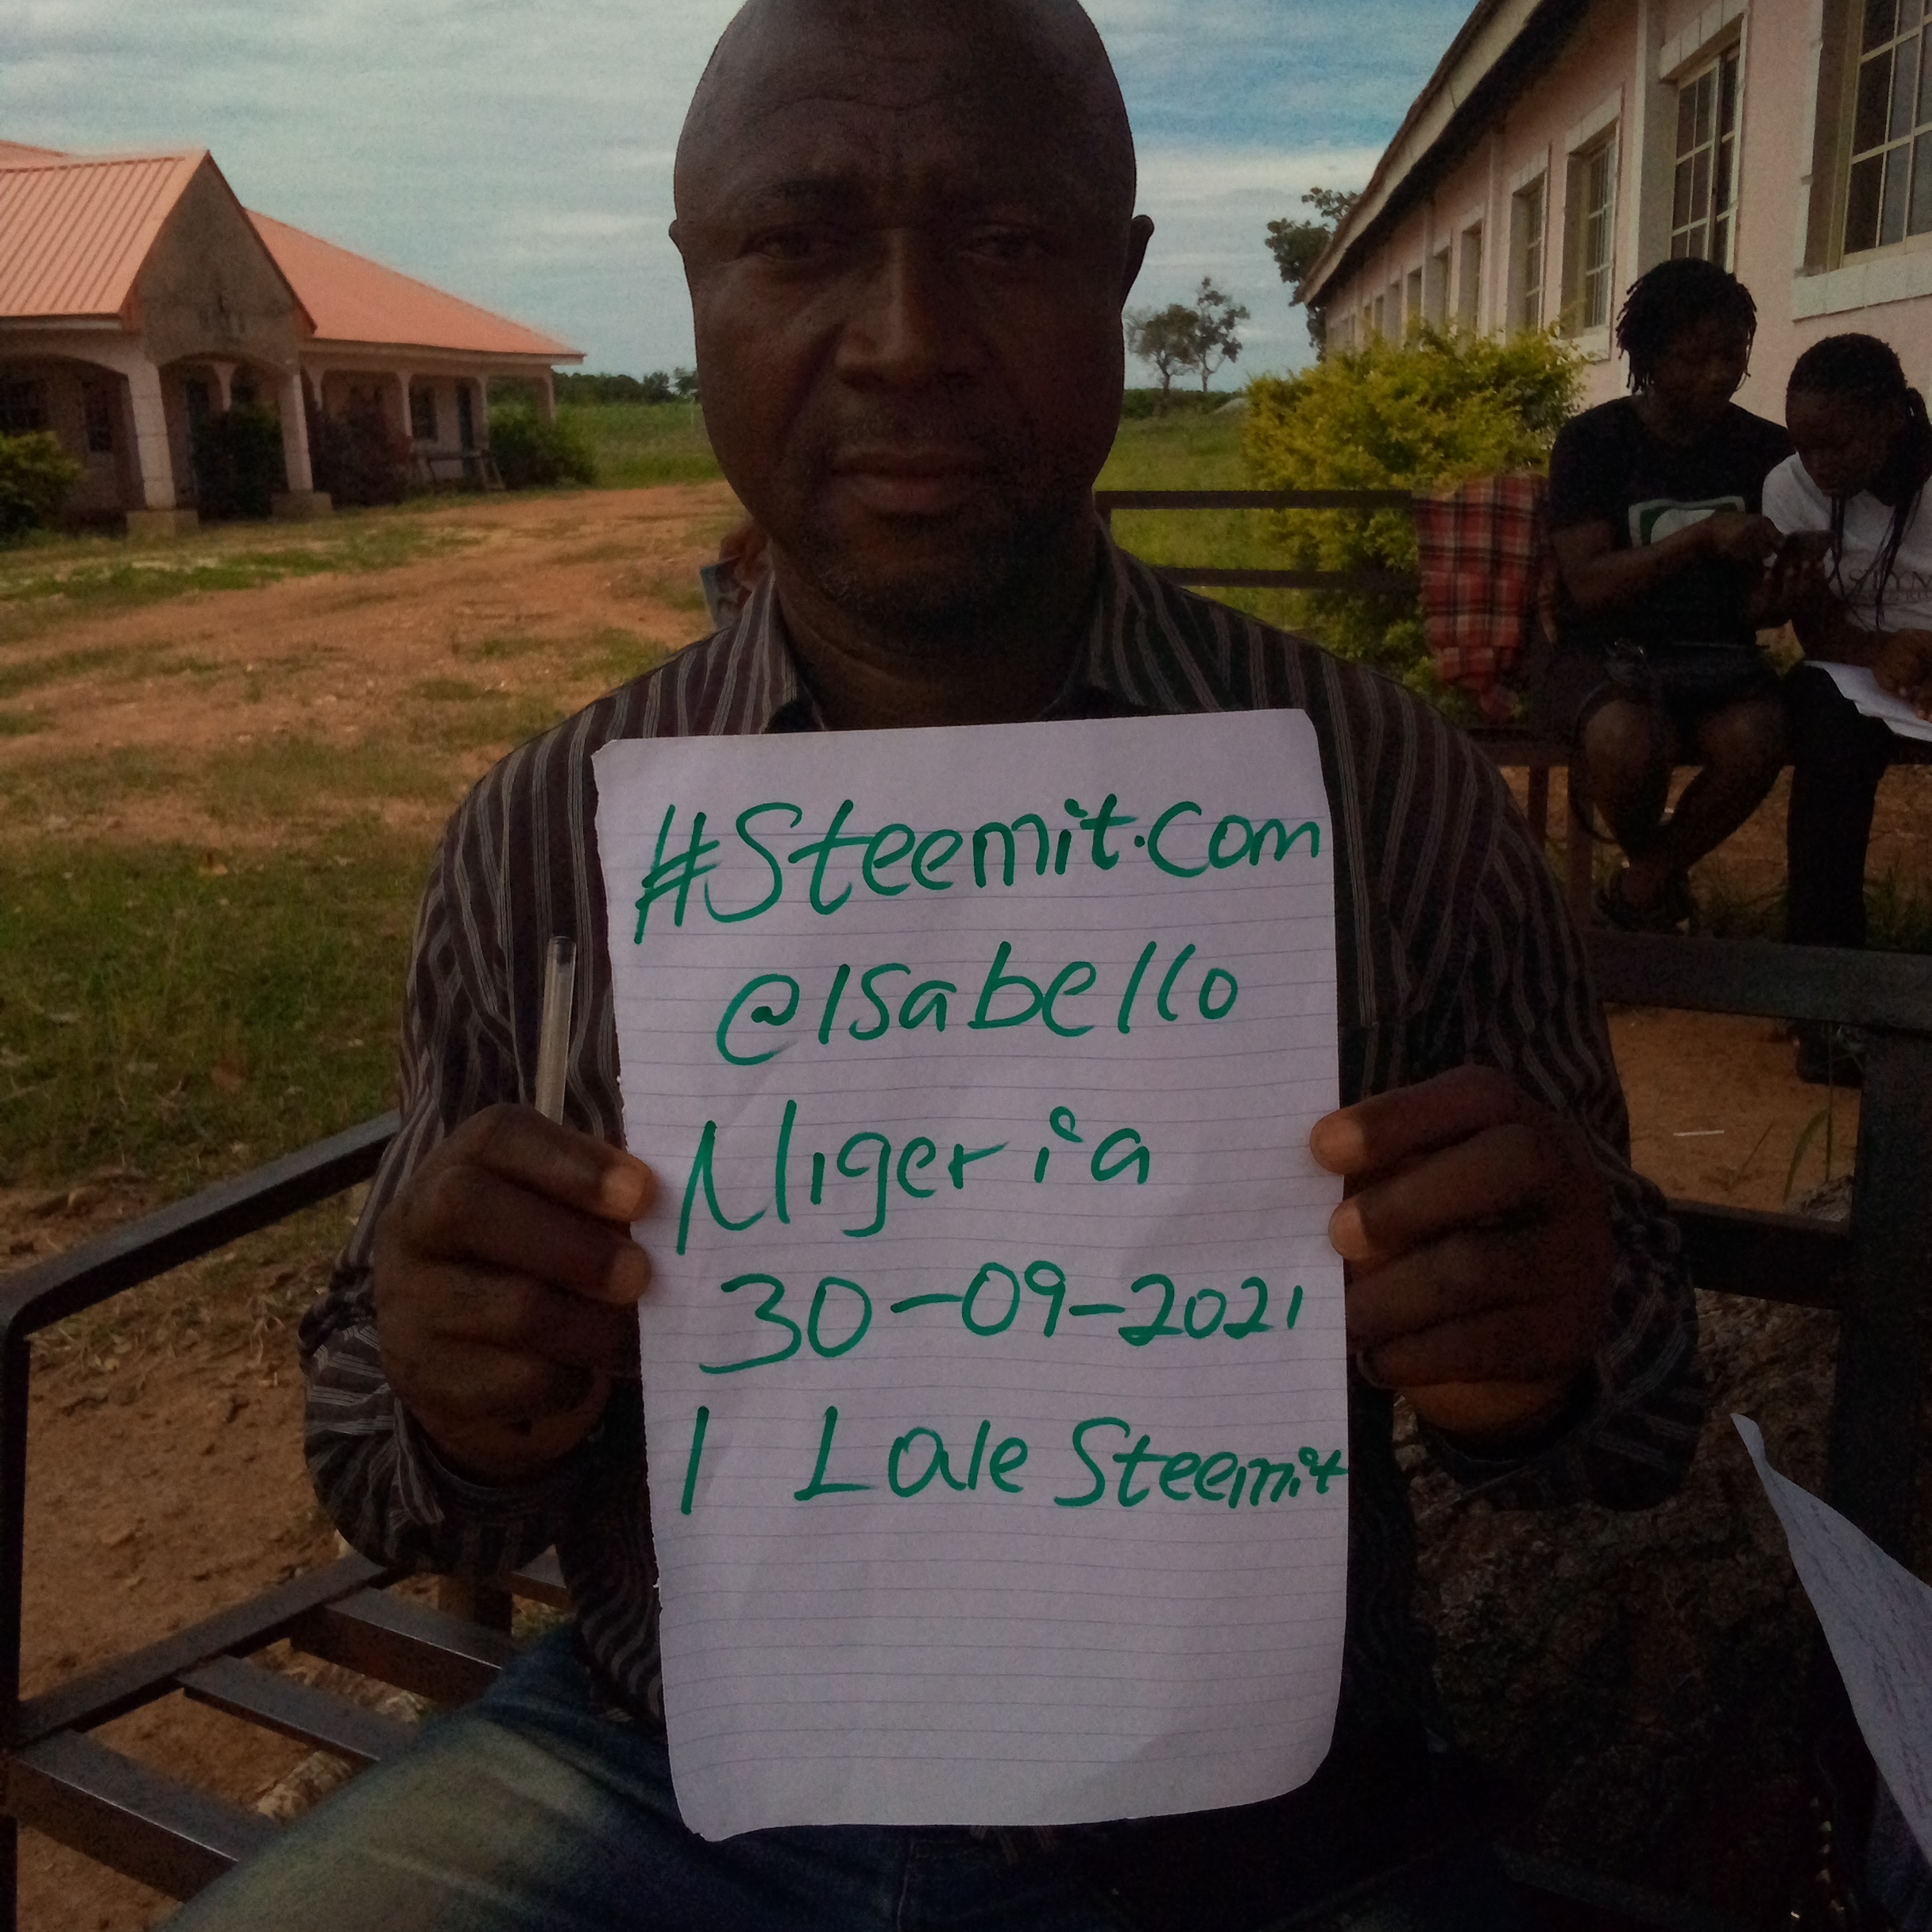 #Steemit.com
@Isabello
Nigeria
30-09-2021
I Lale Steemit